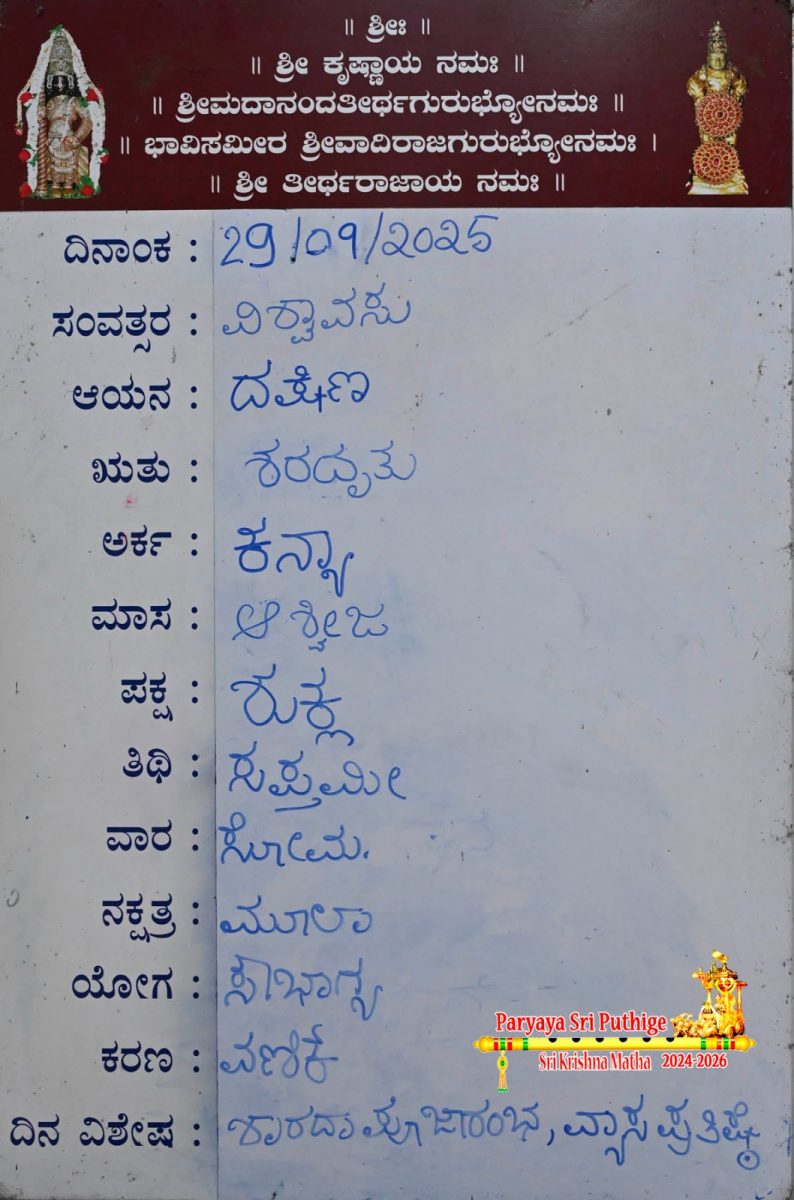 ॥ ಶ್ರೀಃ ॥
॥ ಶ್ರೀ ಕೃಷ್ಣಾಯ ನಮಃ ॥
॥ ಶ್ರೀಮದಾನಂದತೀರ್ಥಗುರುಭ್ಯೋನಮಃ ॥
॥ ಭಾವಿಸಮೀರ ಶ್ರೀವಾದಿರಾಜಗುರುಭ್ಯೋನಮಃ ।
॥ ಶ್ರೀ ತೀರ್ಥರಾಜಾಯ ನಮಃ ॥
ದಿನಾಂಕ : 29/09/೨೦25
ಸಂವತ್ಸರ : ವಿಶ್ವಾವಸು
ಆಯನ : ದಕ್ಷಿಣ
ಋತು : ಶರದೃತು
ಅರ್ಕ : ಕನ್ಯಾ
ಮಾಸ : ಆಶ್ವೀಜ
ಪಕ್ಷ : ಶುಕ್ಲ
ತಿಥಿ : ಸಪ್ತಮೀ
ವಾರ : ಸೋಮ.
ನಕ್ಷತ್ರ : ಮೂಲಾ
ಯೋಗ : ಸೌಭಾಗ್ಯ
ಕರಣ : ವಣಿಕೆ
ದಿನ ವಿಶೇಷ : ಶಾರದಾ ಪೂಜಾರಂಭ, ವ್ಯಾಸ ಪ್ರತಿಷ್ಠೆ
Paryaya Sri Puthige
Sri Krishna Matha 2024-2026